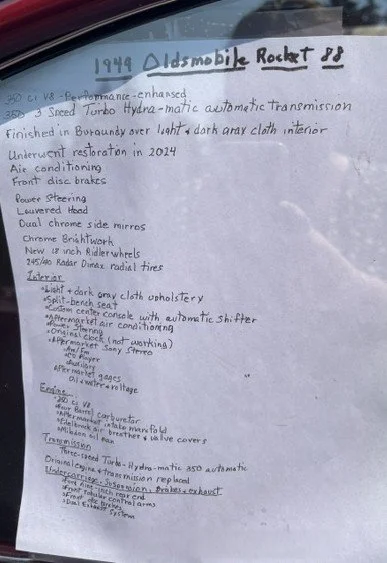 1949 Oldsmobile Rocket 88
350 ci V8 - Performance-enhanced
350 3 Speed Turbo Hydra-matic automatic Transmission
Finished in Burgundy over light & dark gray cloth interior
Underwent restoration in 2024
Air conditioning
Front disc brakes
Power Steering
Louvered Hood
Dual chrome side mirros
Chrome Brightwork
New 18 inch Ridler wheels
245/40 Radar Dimax radial tires
Interior
Light & dark gray cloth upholstery
Split-bench seat
Custom center console with automatic Shifter
Aftermarket air conditioning
Power Steering
Original clock (not working)
Aftermarket Sony Stereo
Am/Fm
CD Player
Auxiliary
Aftermarket gages
Oil & water & voltage
Engine
350 ci V8
Four Barrel carburetor
Aftermarket intake manifold
Edelbrock air breather & valve covers
Milodon oil pan
Transmission
Three-speed Turbo-Hydra-matic 350 automatic
Original engine & transmission replaced
Undercarriage, Suspension, Brakes & exhaust
Ford Nine-inch rear end
Front tubular control arms
Front disc brakes
Dual Exhaust System